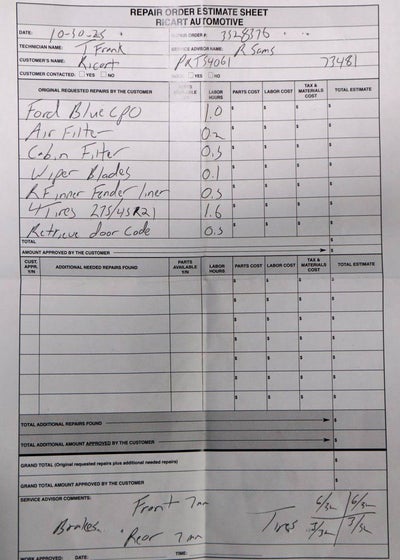 REPAIR ORDER ESTIMATE SHEET
RICART AUTOMOTIVE
DATE: 10-30-25 REPAIR ORDER #: 3528376
TECHNICIAN NAME: T Frank SERVICE ADVISOR NAME: R Sams
CUSTOMER'S NAME: Ricart PRT34061 73481
CUSTOMER CONTACTED: YES NO YES NO
ORIGINAL REQUESTED REPAIRS BY THE CUSTOMER LABOR HOURS PARTS COST LABOR COST TAX & MATERIALS COST TOTAL ESTIMATE
Ford Blue CPO 1.0 $ $ $ $
Air Filter 0.2 $ $ $ $
Cabin Filter 0.3 $ $ $ $
Wiper Blades 0.1 $ $ $ $
RF inner Fender liner 0.5 $ $ $ $
4 Tires 275/45R21 1.6 $ $ $ $
Retrieve door Code 0.3 $ $ $ $
TOTAL $
AMOUNT APPROVED BY THE CUSTOMER $
CUST. APPR. Y/N ADDITIONAL NEEDED REPAIRS FOUND PARTS AVAILABLE Y/N LABOR HOURS PARTS COST LABOR COST TAX & MATERIALS COST TOTAL ESTIMATE
$ $ $ $
$ $ $ $
$ $ $ $
$ $ $ $
$ $ $ $
$ $ $ $
$ $ $ $
TOTAL ADDITIONAL REPAIRS FOUND $
TOTAL ADDITIONAL AMOUNT APPROVED BY THE CUSTOMER $
GRAND TOTAL (Original requested repairs plus additional needed repairs) $
GRAND TOTAL AMOUNT APPROVED BY THE CUSTOMER $
SERVICE ADVISOR COMMENTS:
Front 7mm 6/32 6/32
Brakes Tires
Rear 7mm 3/32 3/32
WORK APPROVED: DATE: TIME: